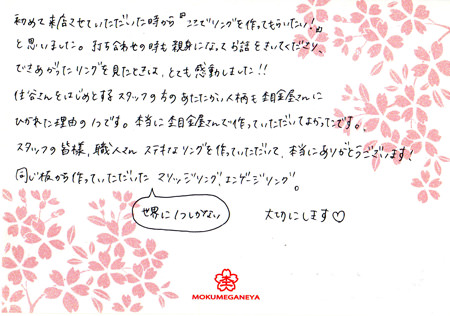 初めて来店させていただいた時から『ココでリングを作ってもらいたい!』
と思いました。打ち合わせの時も親身になってお話をきいてくださり、
できあがったリングを見たときは、とても感動しました!!
住谷さんをはじめとするスタッフの方のあたたかい人柄も杢目金屋さんに
ひかれた理由の1つです。本当に杢目金屋さんで作っていただいてよかったです。
スタッフの皆様、職人さん ステキなリングを作っていただいて、本当にありがとうございます!
同じ板から作っていただいた マリッジリング、エンゲージリング。
世界に1つしかない
大切にします♡
MOKUMEGANEYA